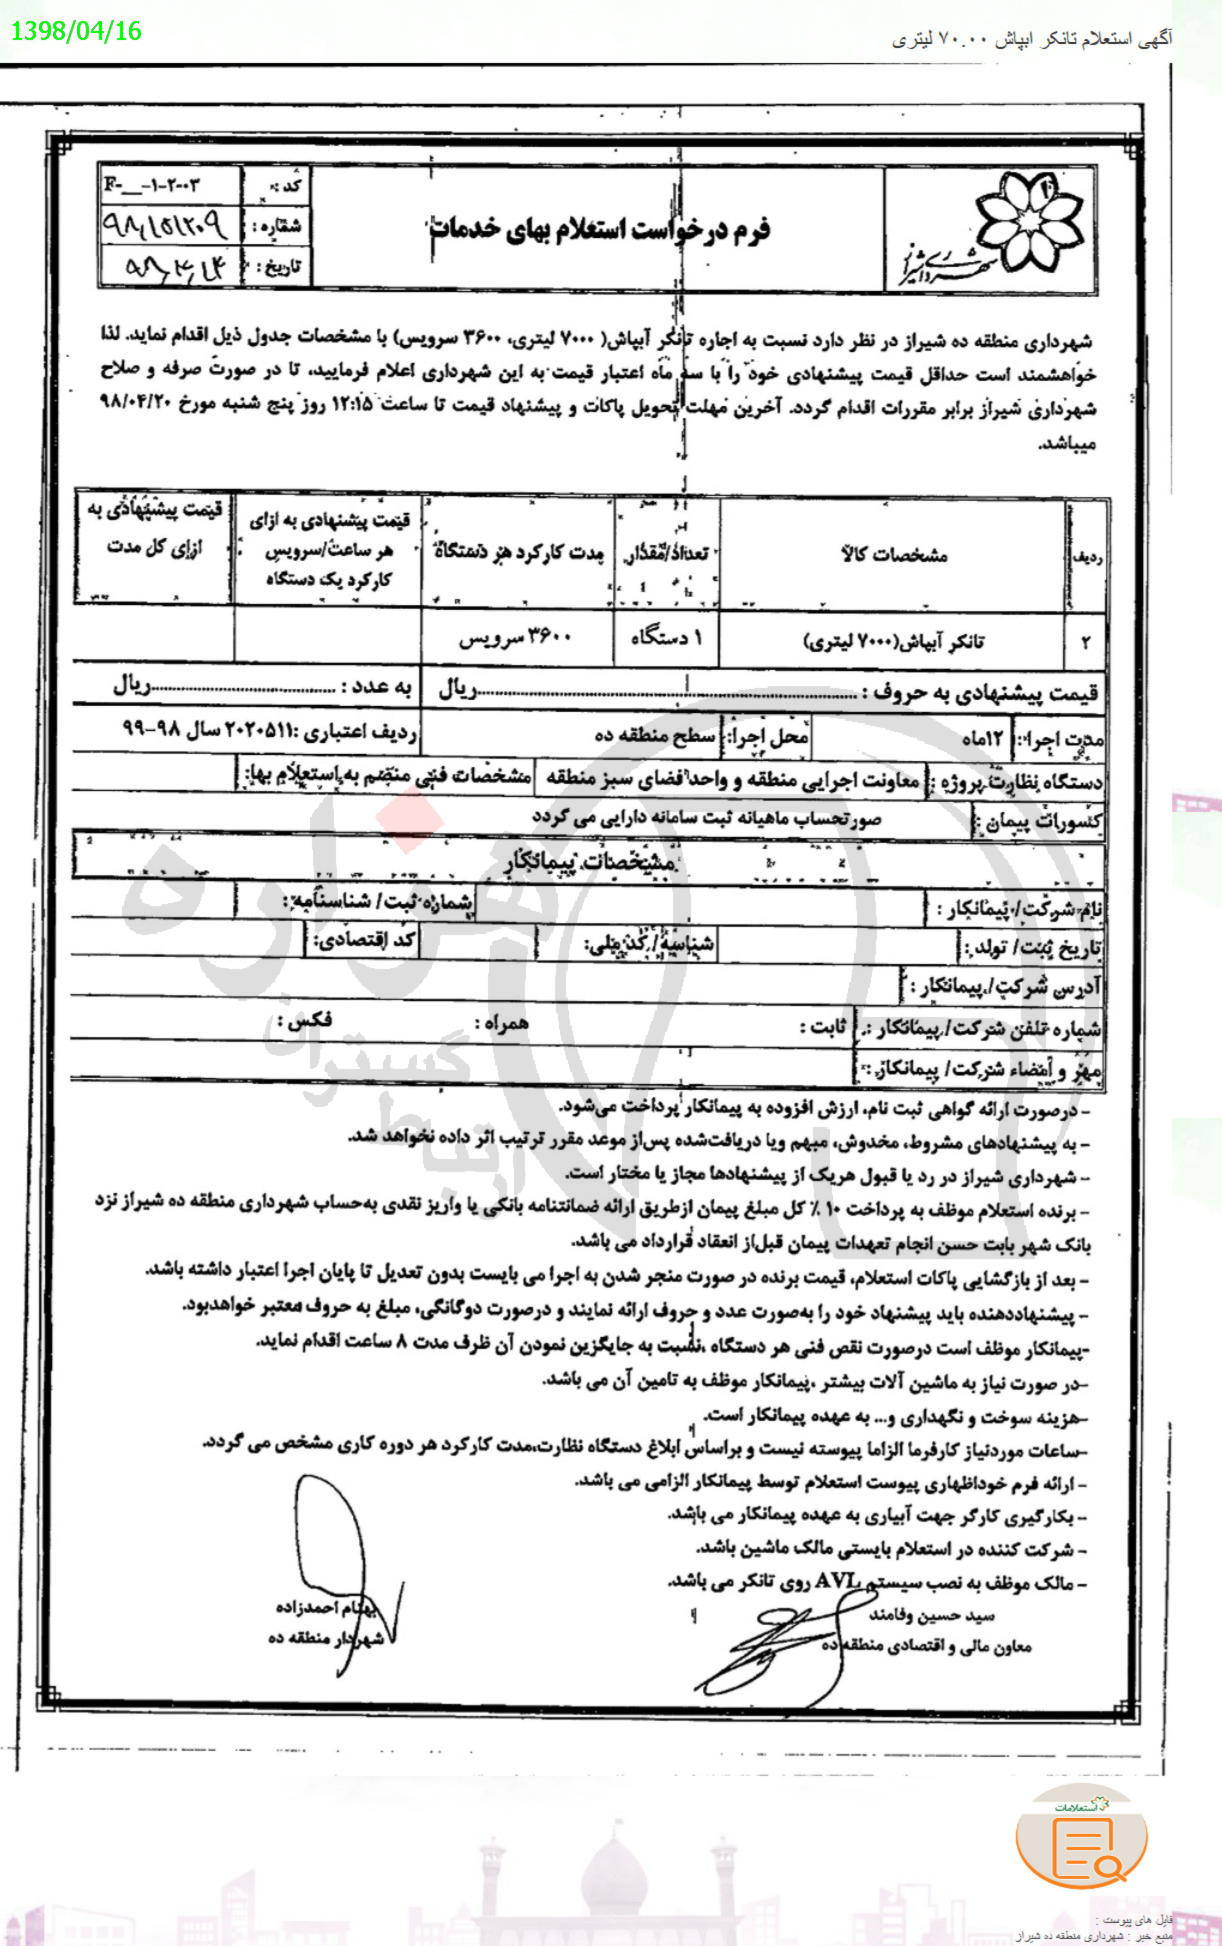 1398/04/16
آگهی استعلام تانکر ابپاش ۷۰.۰۰ لیتری
کد :
F-__-۱-۲-۰۳
شماره :
۹۸/۱۵۱۲۰۹
تاریخ :
فرم درخواست استعلام بهای خدمات
شهرداری شیراز
شهرداری منطقه ده شیراز در نظر دارد نسبت به اجاره تانکر آبپاش( ۷۰۰۰ لیتری، ۳۶۰۰ سرویس) با مشخصات جدول ذیل اقدام نماید. لذا
خواهشمند است حداقل قیمت پیشنهادی خود را با سه ماه اعتبار قیمت به این شهرداری اعلام فرمایید، تا در صورت صرفه و صلاح
شهرداری شیراز برابر مقررات اقدام گردد. آخرین مهلت تحویل پاکات و پیشنهاد قیمت تا ساعت ۱۲:۱۵ روز پنج شنبه مورخ ۹۸/۰۴/۲۰
میباشد.
ردیف
مشخصات کالا
تعداد/مقدار
مدت کارکرد هر دستگاه
قیمت پیشنهادی به ازای هر ساعت/سرویس کارکرد یک دستگاه
قیمت پیشنهادی به ازای کل مدت
۲
تانکر آبپاش(۷۰۰۰ لیتری)
۱ دستگاه
۳۶۰۰ سرویس
قیمت پیشنهادی به حروف : ......................ریال
به عدد : ......................ریال
مدت اجرا: ۱۲ماه
محل اجرا: سطح منطقه ده
ردیف اعتباری :۲۰۲۰۵۱۱ سال ۹۸-۹۹
دستگاه نظارت پروژه : معاونت اجرایی منطقه و واحد فضای سبز منطقه
مشخصات فنی منضم به استعلام بها:
کسورات پیمان : صورتحساب ماهیانه ثبت سامانه دارایی می گردد
مشخصات پیمانکار
نام شرکت/ پیمانکار :
شماره ثبت/ شناسنامه :
تاریخ ثبت/ تولد :
شناسه/ کد ملی:
کد اقتصادی:
آدرس شرکت/ پیمانکار :
شماره تلفن شرکت/ پیمانکار : ثابت :
همراه :
فکس :
مهر و امضاء شرکت/ پیمانکار :
- درصورت ارائه گواهی ثبت نام، ارزش افزوده به پیمانکار پرداخت می‌شود.
- به پیشنهادهای مشروط، مخدوش، مبهم ویا دریافت‌شده پس‌از موعد مقرر ترتیب اثر داده نخواهد شد.
- شهرداری شیراز در رد یا قبول هریک از پیشنهادها مجاز یا مختار است.
- برنده استعلام موظف به پرداخت ۱۰ ٪ کل مبلغ پیمان ازطریق ارائه ضمانتنامه بانکی یا واریز نقدی به‌حساب شهرداری منطقه ده شیراز نزد
بانک شهر بابت حسن انجام تعهدات پیمان قبل‌از انعقاد قرارداد می باشد.
- بعد از بازگشایی پاکات استعلام، قیمت برنده در صورت منجر شدن به اجرا می بایست بدون تعدیل تا پایان اجرا اعتبار داشته باشد.
- پیشنهاددهنده باید پیشنهاد خود را به‌صورت عدد و حروف ارائه نمایند و درصورت دوگانگی، مبلغ به حروف معتبر خواهدبود.
-پیمانکار موظف است درصورت نقص فنی هر دستگاه ،نسبت به جایگزین نمودن آن ظرف مدت ۸ ساعت اقدام نماید.
-در صورت نیاز به ماشین آلات بیشتر ،پیمانکار موظف به تامین آن می باشد.
-هزینه سوخت و نگهداری و... به عهده پیمانکار است.
-ساعات موردنیاز کارفرما الزاما پیوسته نیست و براساس ابلاغ دستگاه نظارت،مدت کارکرد هر دوره کاری مشخص می گردد.
- ارائه فرم خوداظهاری پیوست استعلام توسط پیمانکار الزامی می باشد.
- بکارگیری کارگر جهت آبیاری به عهده پیمانکار می باشد.
- شرکت کننده در استعلام بایستی مالک ماشین باشد.
- مالک موظف به نصب سیستم AVL روی تانکر می باشد.
سید حسین وفامند
معاون مالی و اقتصادی منطقه ده
بهنام احمدزاده
شهردار منطقه ده
هزاره
گستران
ارتباط
استعلامات
فایل های پیوست :
منبع خبر : شهرداری منطقه ده شیراز